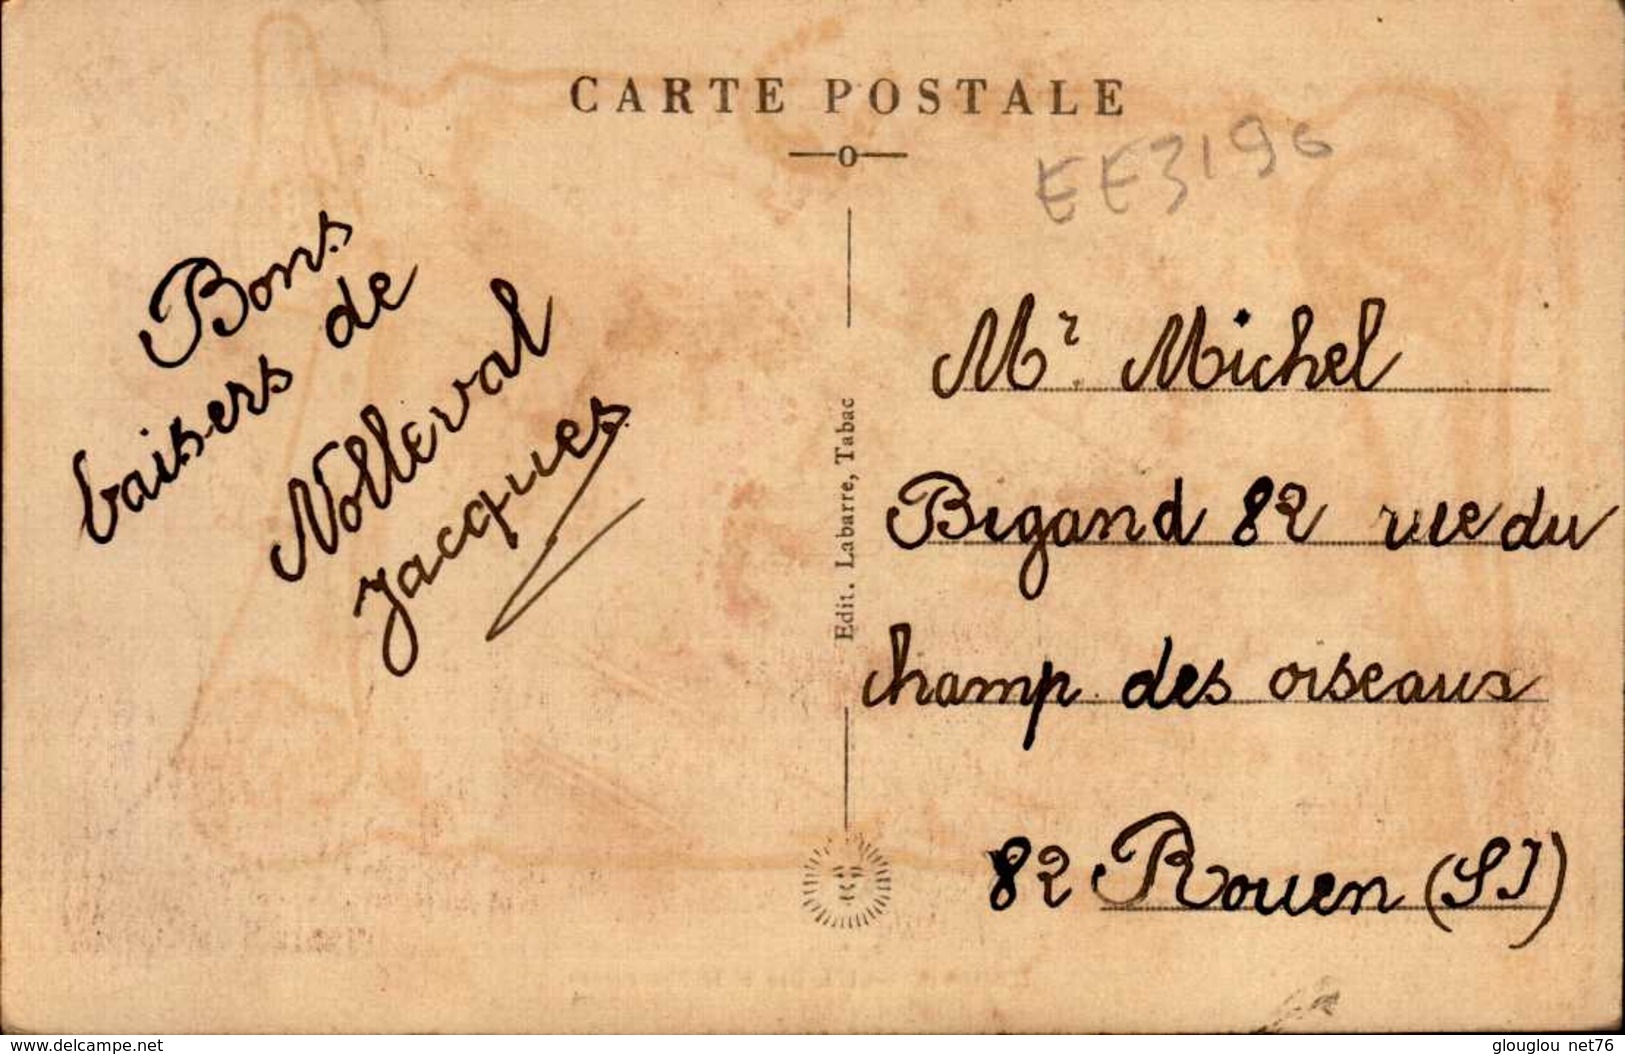 CARTE POSTALE
EE3196
Bons
baisers de
Nolleval
Jacques
Edit. Labarre, Tabac
Mr. Michel
Bigand 82 rue du
champ des oiseaux
82 Rouen (SI)
www.delcampe.net
glouglou net76